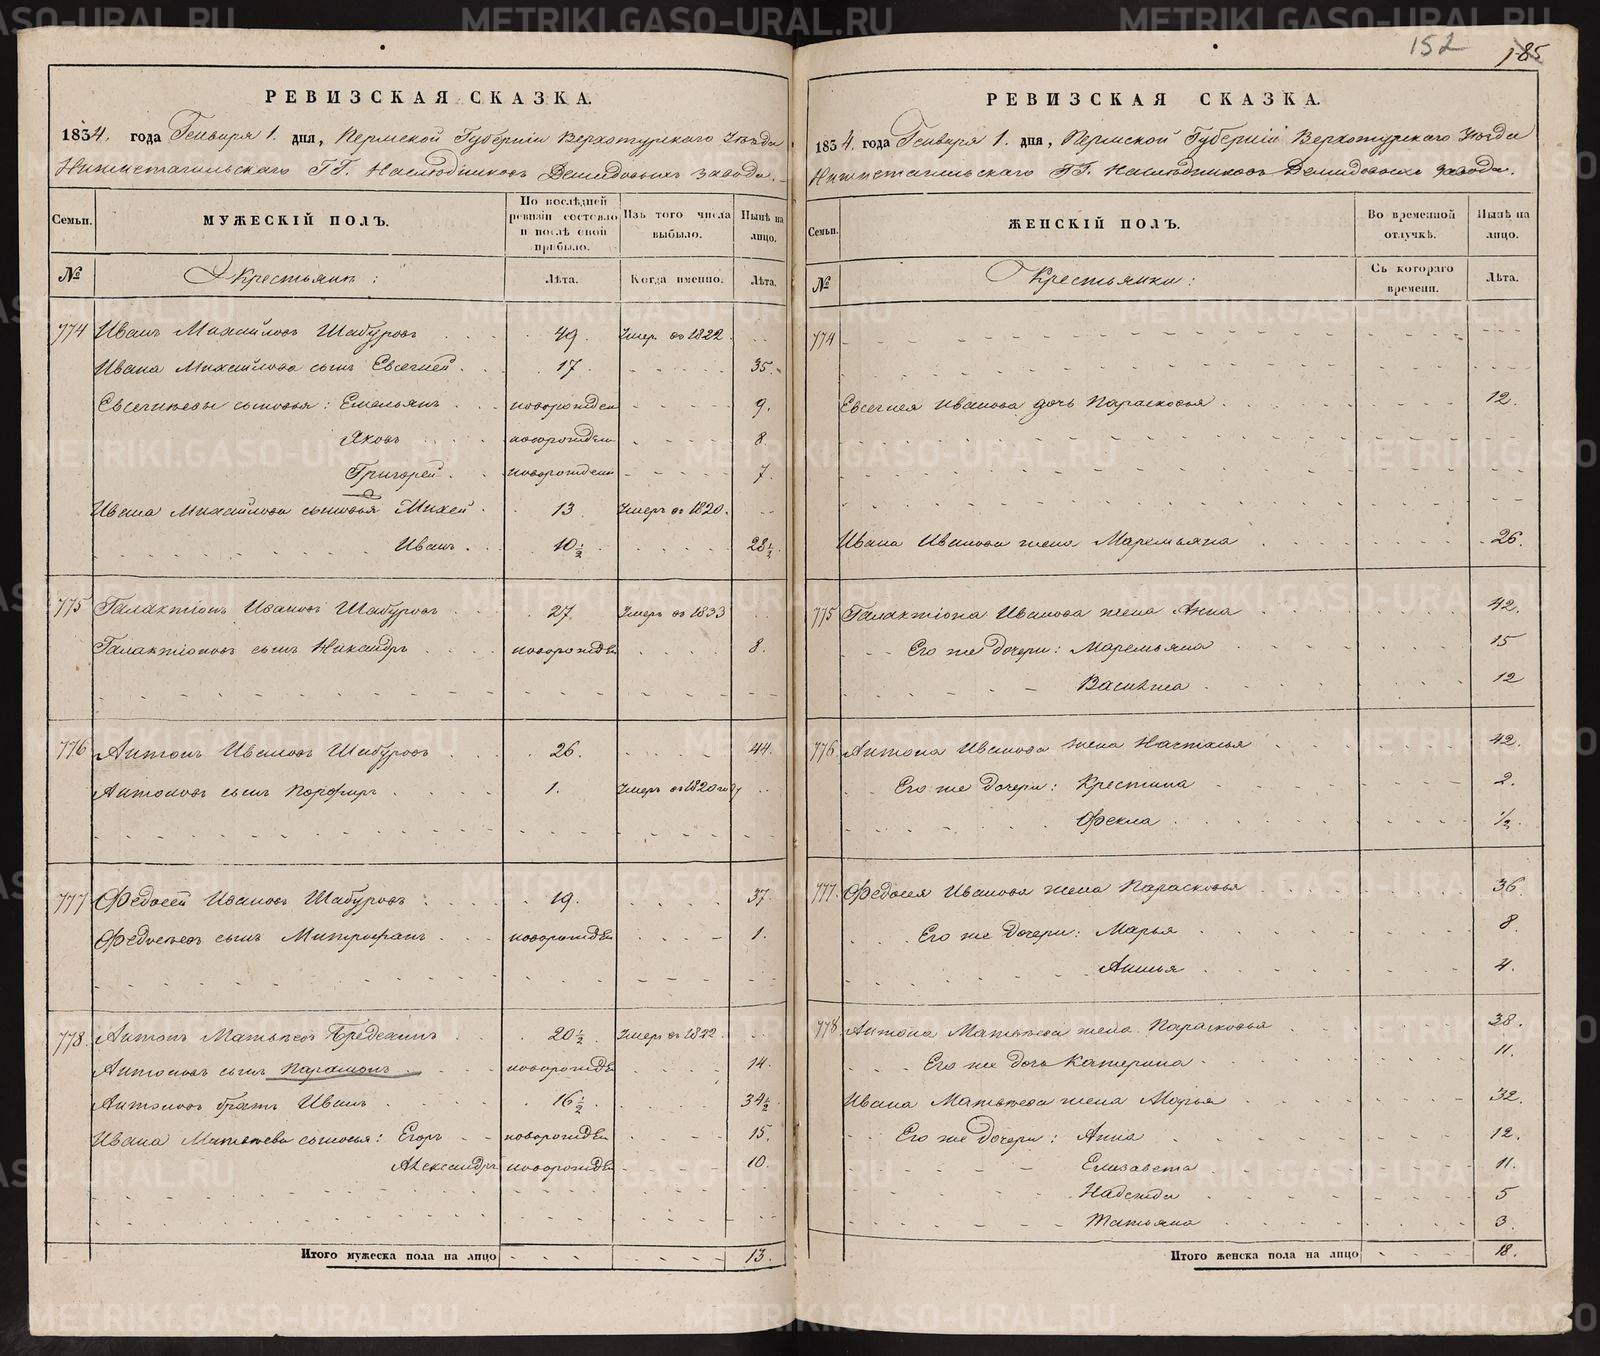 152 185
РЕВИЗСКАЯ СКАЗКА.
1834. года Генваря 1. дня, Пермской Губерніи Верхотурскаго Уѣзда
Нижнетагильскаго ГГ. Наслѣдниковъ Демидовыхъ завода.
Семьи. МУЖЕСКІЙ ПОЛЪ. По послѣдней ревизіи состояло и послѣ оной прибыло. Изъ того числа выбыло. Нынѣ на лицо.
№ Крестьянъ: Лѣта. Когда именно. Лѣта.
774 Иванъ Михайловъ Шабуровъ 49. Умеръ въ 1822
Ивана Михайлова сынъ Евсегней 17. 35.
Евсегнѣевы сыновья: Емельянъ новорожден 9.
Яковъ новорожден 8.
Григорей новорожден 7.
Ивана Михайлова сыновья Михей 13 Умеръ въ 1820.
Иванъ 10½ 28½
775 Галактіонъ Ивановъ Шабуровъ 27 Умеръ въ 1833
Галактіоновъ сынъ Никандръ новорожден 8.
776 Антонъ Ивановъ Шабуровъ 26. 44.
Антоновъ сынъ Порфиръ 1. Умеръ въ 1820 году
777 Федосей Ивановъ Шабуровъ 19. 37.
Федосѣевъ сынъ Митрофанъ новорожден 1.
778. Антонъ Матвѣевъ Бредехинъ 20½ Умеръ въ 1822
Антоновъ сынъ Парамонъ новорожден 14.
Антоновъ братъ Иванъ 16½ 34½
Ивана Матвѣева сыновья: Егоръ новорожден 15.
Александръ новорожден 10
Итого мужеска пола на лицо 13.
РЕВИЗСКАЯ СКАЗКА.
1834. года Генваря 1. дня, Пермской Губерніи Верхотурскаго Уѣзда
Нижнетагильскаго ГГ. Наслѣдниковъ Демидовыхъ завода.
Семьи. ЖЕНСКІЙ ПОЛЪ. Во временной отлучкѣ. Нынѣ на лицо.
№ Крестьянки: Съ котораго времени. Лѣта.
774
Евсегнея Иванова дочь Парасковья 12.
Ивана Иванова жена Маремьяна 26.
775 Галактіона Иванова жена Анна 42.
Его же дочери: Маремьяна 15
Василиса 12
776 Антона Иванова жена Настасья 42.
Его же дочери: Крестина 2.
Фекла ½.
777. Федосея Иванова жена Парасковья 36
Его же дочери: Марья 8.
Анисья 4.
778 Антона Матвѣева жена Парасковья 38.
Его же дочь Катерина 11.
Ивана Матвѣева жена Марья 32.
Его же дочери: Анна 12.
Елизавета 11.
Надежда 5
Татьяна 3.
Итого женска пола на лицо 18.
METRIKI.GASO-URAL.RU